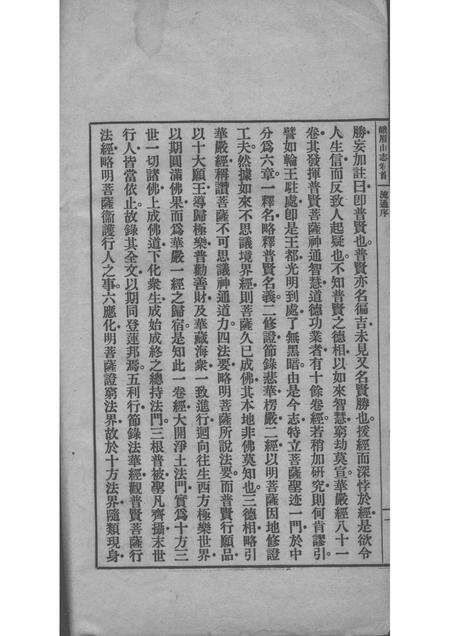 峨眉山志卷首 流通序
勝妄加註曰卽普賢也普賢亦名徧吉未見又名賢勝也援經而深悖於經是欲令
人生信而反致人起疑也不知普賢之德相以如來智慧窮劫莫宣華嚴經八十一
卷其發揮普賢菩薩神通智慧道德功業者有十餘卷經若稍加研究則何肯謬引
譬如輪王駐處卽是王都光明到處了無黑暗由是今志特立菩薩聖迹一門於中
分爲六章一釋名略釋普賢名義二修證節錄悲華楞嚴二經以明菩薩因地修證
工夫然據如來不思議境界經則菩薩久已成佛其本地非佛莫知也三德相略引
華嚴經稱讚菩薩不可思議神通道力四法要略明菩薩所說法要而普賢行願品
以十大願王導歸極樂普勸善財及華藏海衆一致進行迴向往生西方極樂世界
以期圓滿佛果而爲華嚴一經之歸宿是知此一卷經大開淨土法門實爲十方三
世一切諸佛上成佛道下化衆生成始成終之總持法門三根普被聖凡齊攝末世
行人皆當依止故錄其全文以期同登蓮邦焉五利行節錄法華經觀普賢菩薩行
法經略明菩薩衞護行人之事六應化明菩薩證窮法界故於十方法界隨類現身